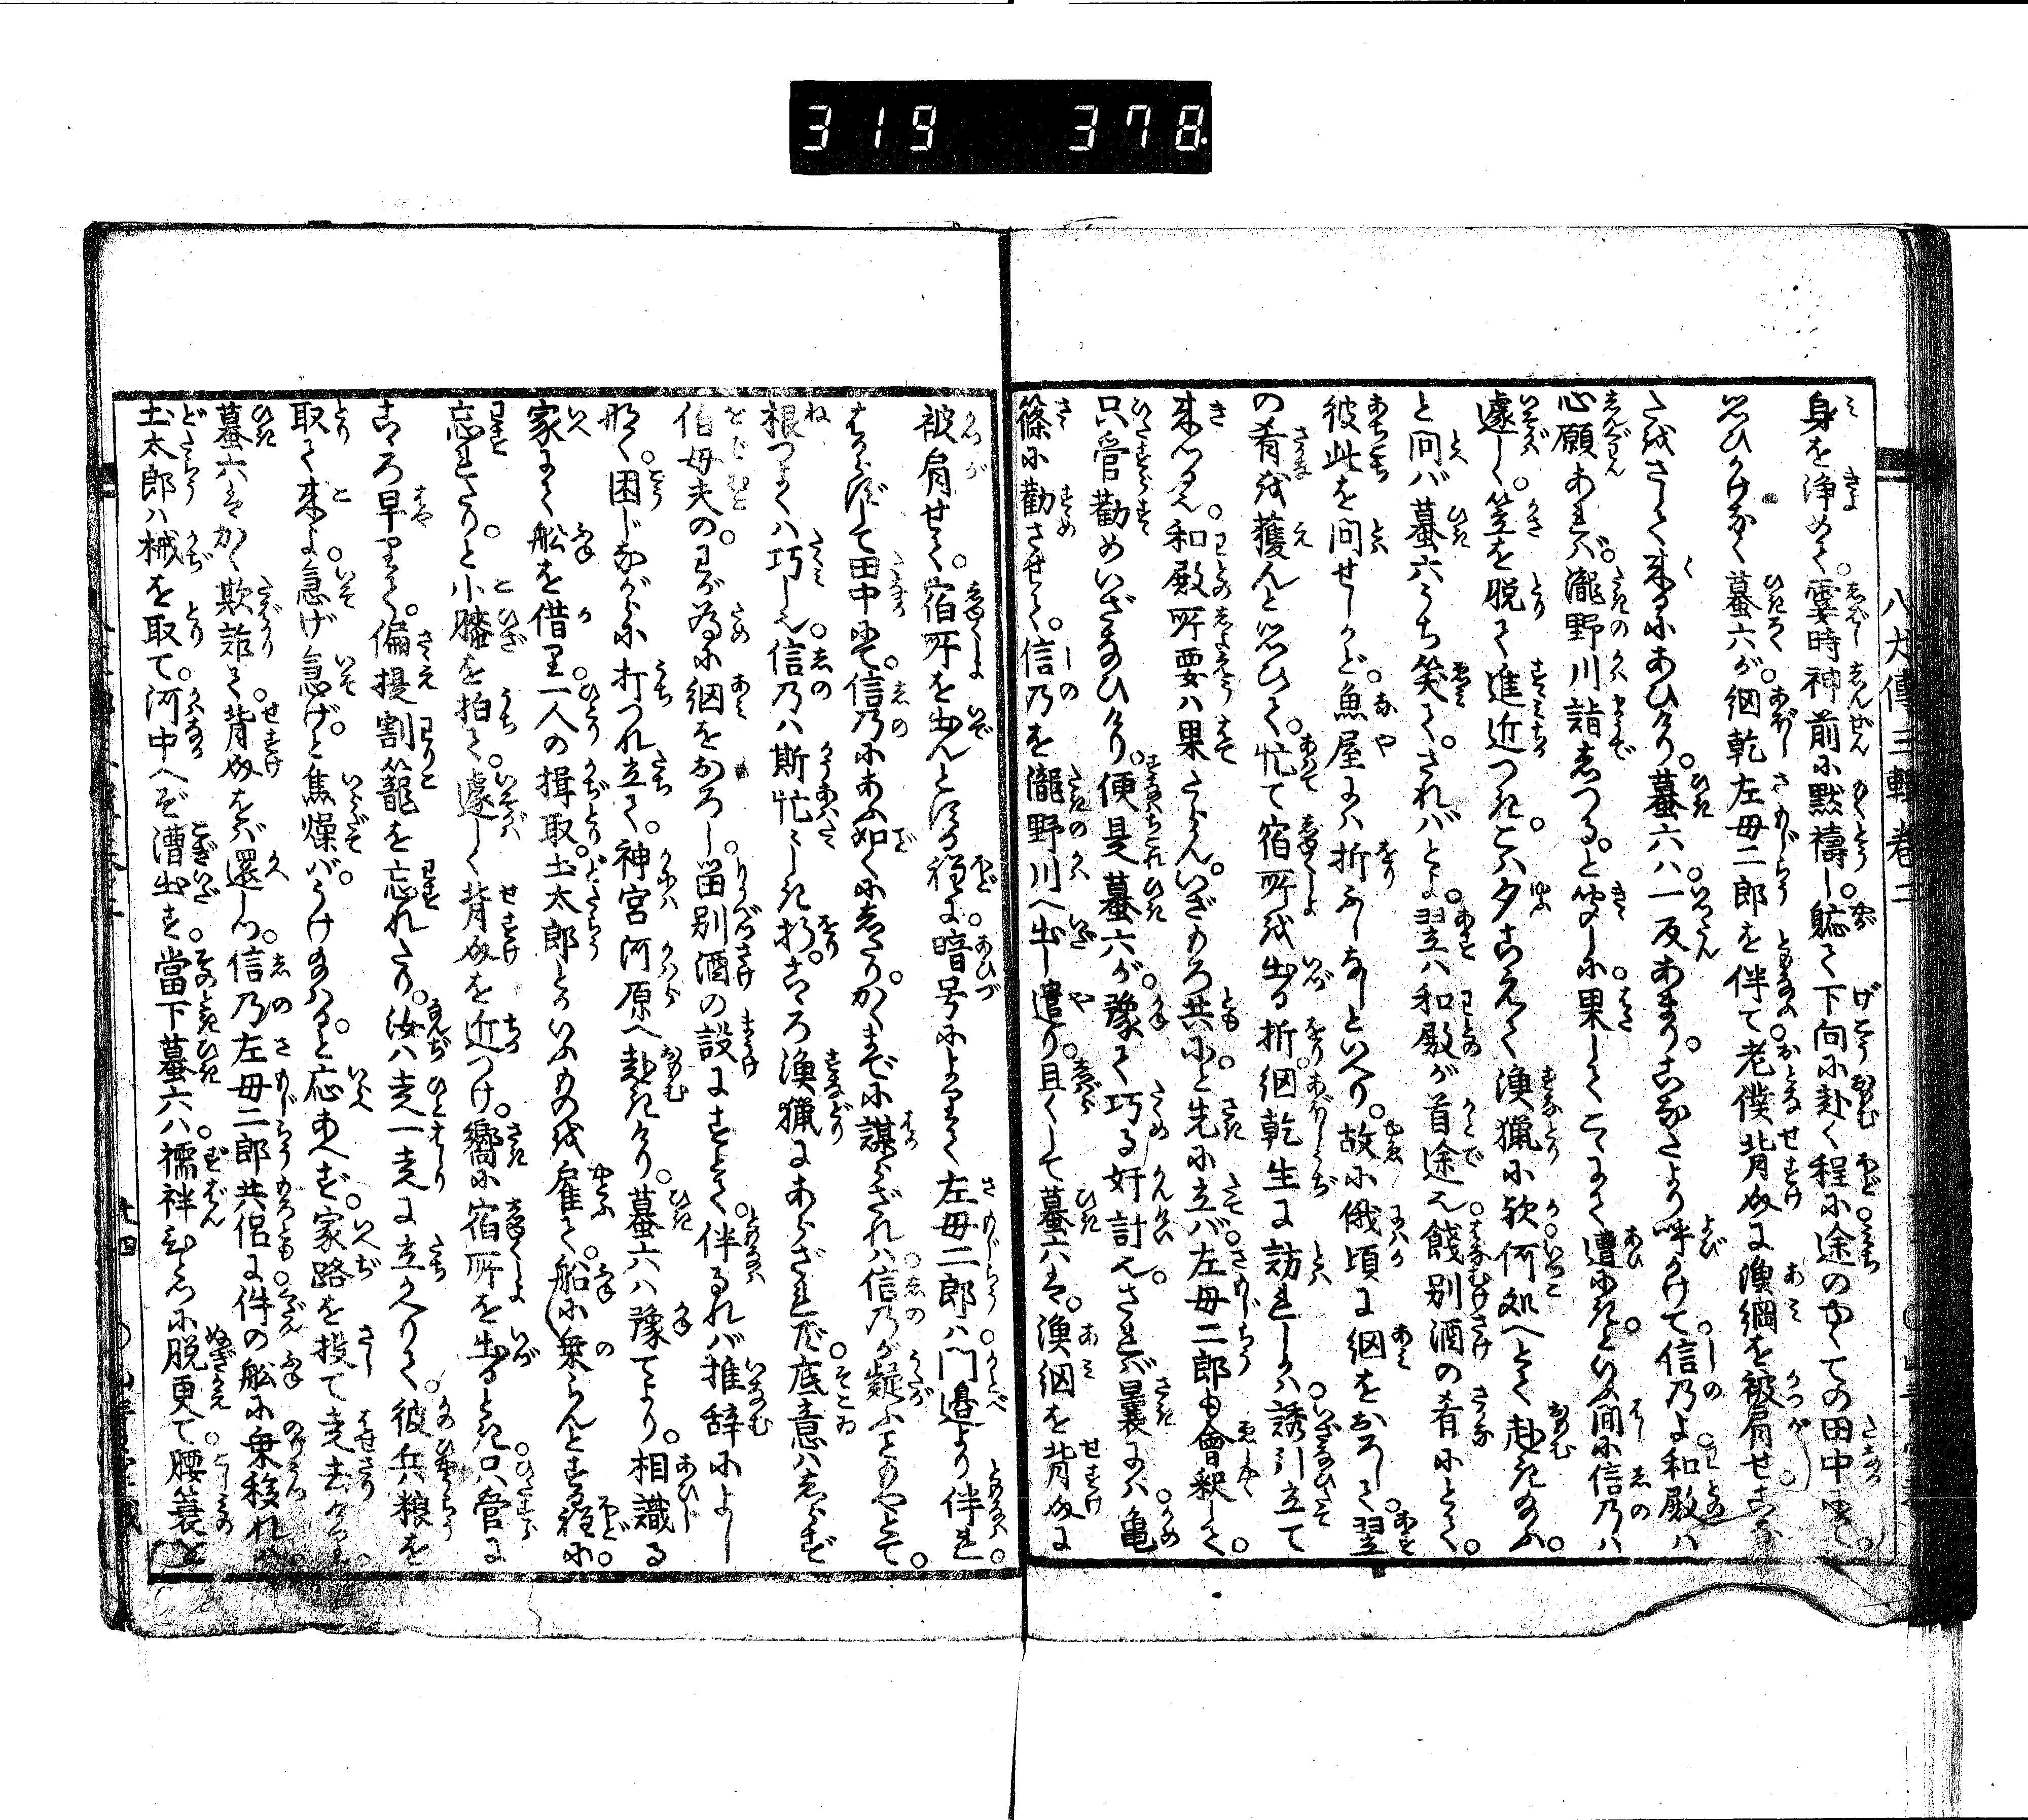 319 378
八犬傳三輯卷二
身を浄めて。霎時神前に黙祷し。軈て下向に赴く程に途のゆくての田中にて。
思ひがけなく蟇六が。網乾左母二郎を伴て老僕背介に漁網を被肩せこな
たをさして来るにあひけり。蟇六ハ一反あまり。こなたより呼かけて信乃よ和殿ハ
心願あれバ。瀧野川詣しつる。と聞しに果してこゝにて遭にきといふ間に信乃ハ
遽しく。笠を脱て進近つき。こハ夕こえて漁猟に欤何処へとて赴き給ふ。
と問バ蟇六うち笑て。さればとよ。翌ハ和殿が首途也餞別酒の肴にとて。
彼此を問せしかど。魚屋にハ折ふしなしといへり。故に俄頃に網をおろして翌
の肴を獲んと思ひて。忙て宿所を出る折。網乾生に訪れしかバ誘引立て
来つる也。和殿所要ハ果たらん。いざもろ共にと先に立バ左母二郎も會釈して。
只管勧めいざなひけり。便是蟇六が。豫て巧る奸計也。されバ曩にハ亀
篠に勧させて。信乃を瀧野川へ出し遣り。且くして蟇六ハ。漁網を背介に
被肩せて。宿所を出んとする程に。暗号によりて左母二郎ハ門邉より伴れ。
はからずして田中にて。信乃にあふ如くにしたり。かくまでに謀らざれハ。信乃が疑ふこともやとて。
根づよくハ巧し也。信乃ハ斯忙々しき折。こゝろ漁猟にあらざれど。底意ハしらず
伯母夫の。わが為に網をおろし。留別酒の設にすとて。伴るれバ推辞によし
なく。困じながらに打つれ立て。神宮河原へ赴きけり。蟇六ハ豫てより。相識る
家にて舩を借り。一人の揖取土太郎とかいふものを雇て。船に乗らんとする程に。
忘れたり。と小膝を拍て。遽しく背介を近つけ。嚮に宿所を出るとき。只管に
こゝろ早りて。偏提割籠を忘れたり。汝ハ走一走に立かへりて。彼兵粮を
取て来よ。急げ急げ。と焦燥バ。うけ給ハりぬと応あへず。家路を投て走去けり。
蟇六はかく欺詐て。背介をバ還しつ。信乃左母二郎共侶に件の舩に乗移れハ
土太郎ハ械を取て。河中へぞ漕出す。當下蟇六ハ。襦袢ひとつに脱更て。腰簑を
十四